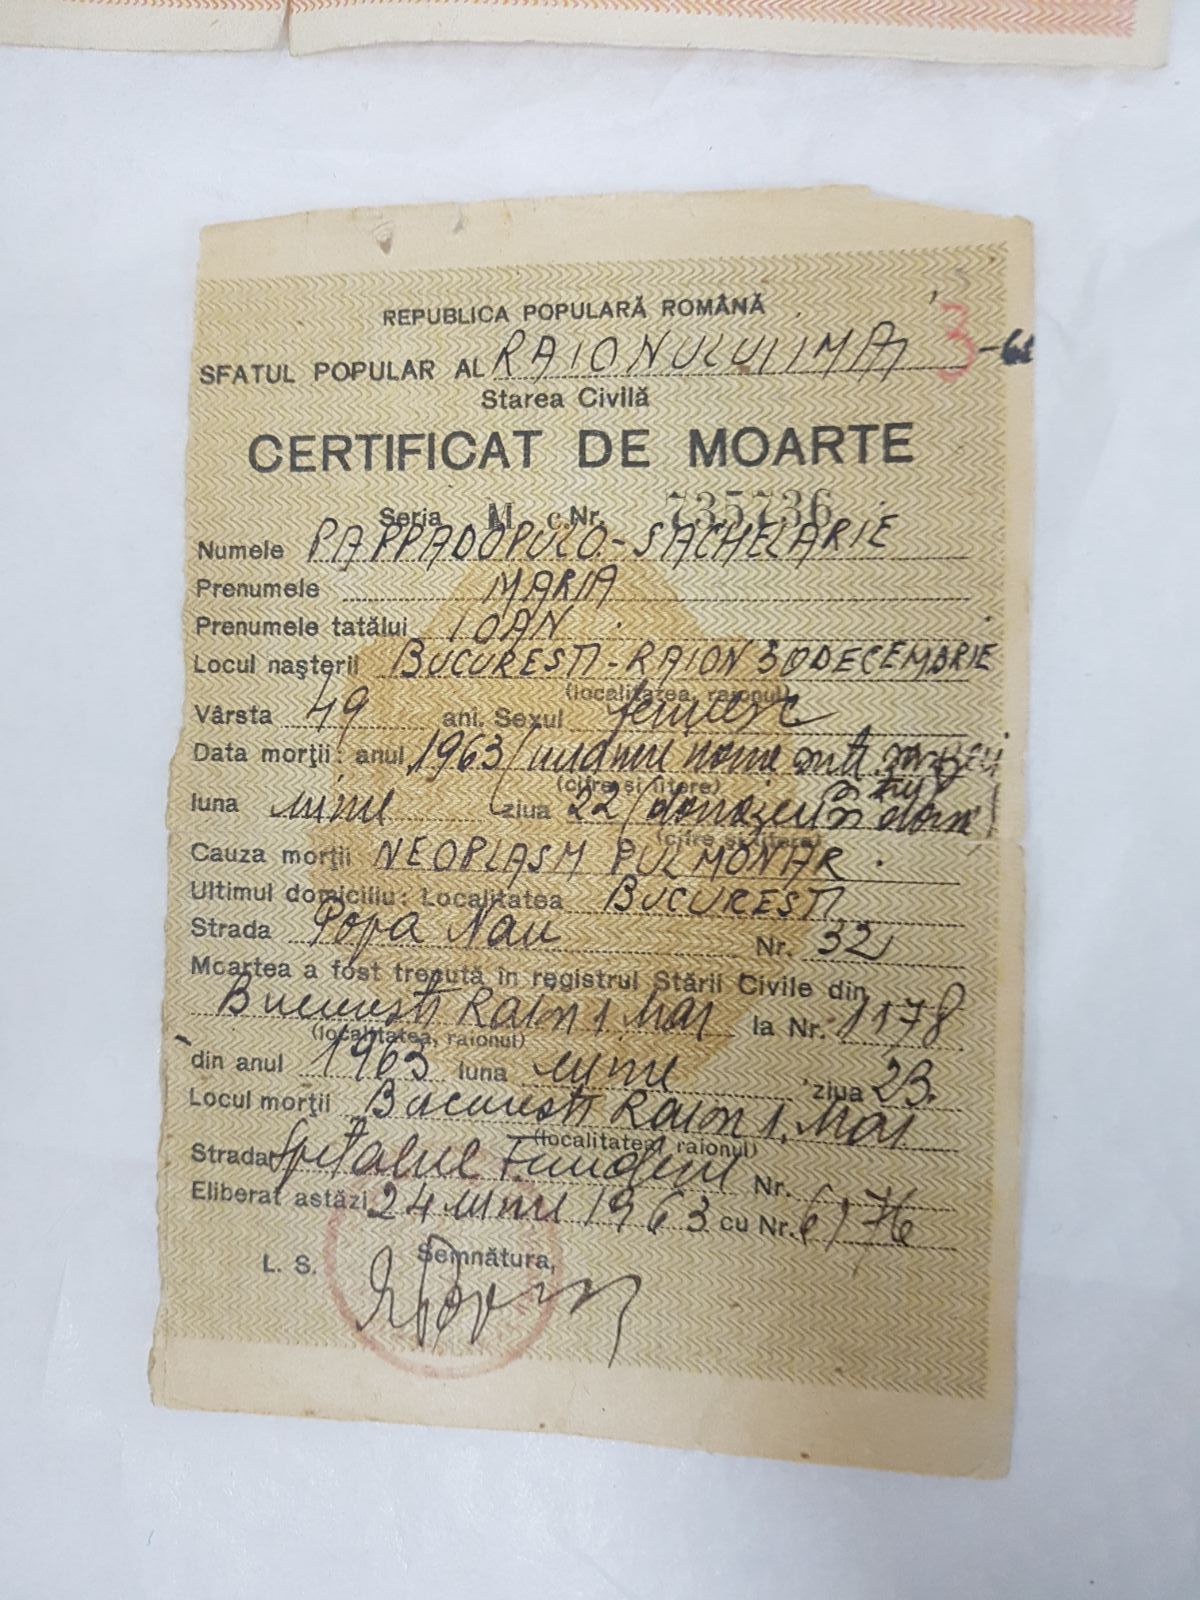 REPUBLICA POPULARĂ ROMÂNĂ
SFATUL POPULAR AL RAIONULUI 1 MAI 3-61
Starea Civilă
CERTIFICAT DE MOARTE
Seria M c Nr. 735736
Numele PAPPADOPULO-SACHELARIE
Prenumele MARIA
Prenumele tatălui IOAN
Locul nașterii BUCURESTI-RAION 30 DECEMBRIE
(localitatea, raionul)
Vârsta 49 ani. Sexul femeesc
Data morții: anul 1963 (unamie nouie sute
(cifre și litere)
luna iunie ziua 22 (douazeci si doua)
(cifre și litere)
Cauza morții NEOPLASM PULMONAR
Ultimul domiciliu: Localitatea BUCURESTI
Strada Popa Nan Nr. 32
Moartea a fost trecută în registrul Stării Civile din
Bucuresti Raion 1. Mai la Nr. 1178
(localitatea, raionul)
din anul 1963 luna iunie ziua 23.
Locul morții Bucuresti Raion 1. Mai
(localitatea, raionul)
Strada Spitalul Fundeni Nr.
Eliberat astăzi 24 iunie 1963 cu Nr. 6176
L. S. Semnătura,